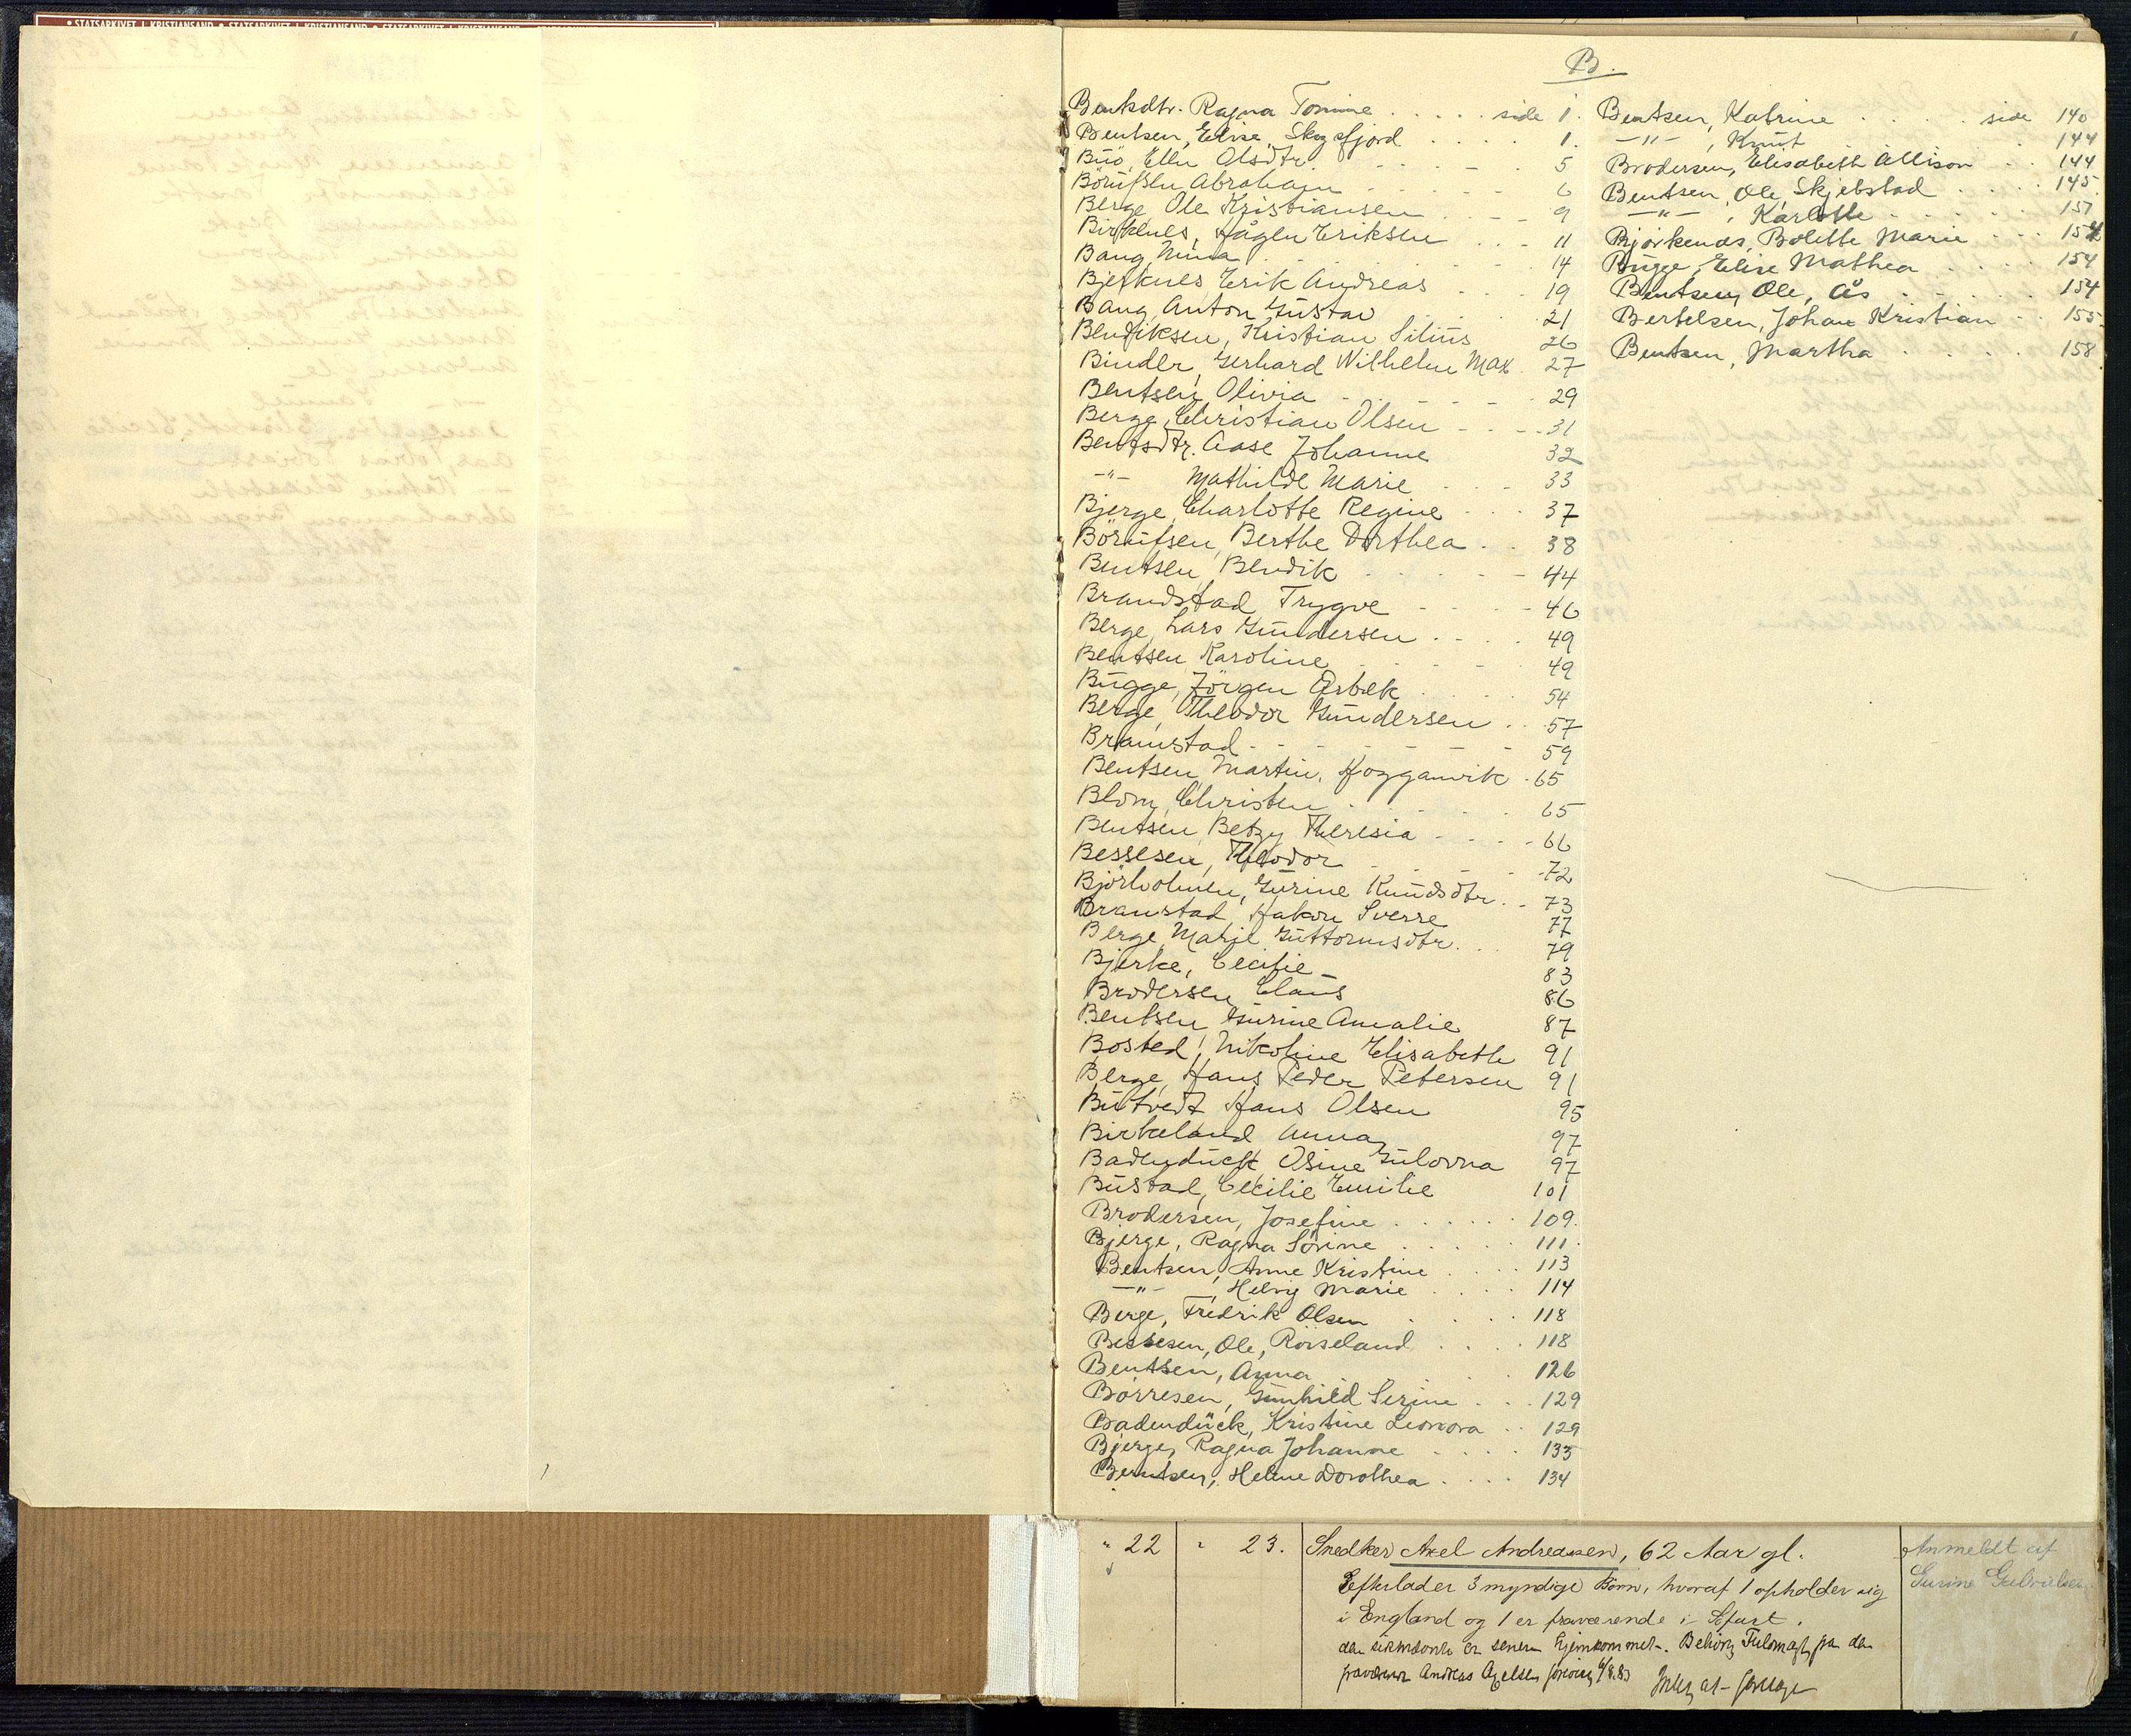 STATSARKIVET I KRISTIANSAND • STATSARKIVET I KRISTIANSAND • STATSARKIVET I KRISTIANSAND
B.
Bentsdtr. Ragna Tomine . . . . . side 1.
Bentsen, Elise, Skogsfjord . . . . 1.
Buö, Ellen Olsdtr . . . . 5
Börufsen Abraham . . . . 6
Berge, Ole Kristiansen . . . 9
Birkenes, Hågen Eriksen . . . 11
Bang, Nina . . . . 14
Bjerknes Erik Andreas . . . 19
Bang, Anton Gustav . . . 21
Bendiksen, Kristian Silius 26
Binder, Gerhard Wilhelm Max. 27
Bentsen, Olivia - - - - 29
Berge, Christian Olsen - - - 31
Bentsdtr. Aase Johanne 32
-"- Mathilde Marie . . . 33
Bjerge, Charlotte Regine . . . 37
Börufsen, Berthe Dorthea . . 38
Bentsen, Bendik . . . . 44
Brandstad Trygve . . . . 46
Berge, Lars Gundersen . . . . 49
Bentsen Karoline . . . . 49
Bugge, Jörgen Arbek . . . . 54
Berge, Theodor Gundersen . . 57
Bramstad - - - - 59
Bentsen, Martin, Hogganvik . 65
Blom, Christen . . . . 65
Bentsen, Betzy Theresia . . . 66
Bessesen, Theodor . . . . 72
Björholmen, Gurine Knudsdtr. . . 73
Bramstad, Hakon Sverre 77
Berge Marje Guttormsdtr. . . 79
Bjerke, Cecilie 83
Brodersen Claus 86
Bentsen Gurine Amalie 87
Bosted, Nikoline Elisabeth 91
Berge, Hans Peder Petersen 91
Butvedt Hans Olsen 95
Birkeland Anna 97
Badendück Osine Gulovna 97
Bustad, Cecilie Emilie 101
Brodersen, Josefine . . . . . . 109.
Bjerge, Ragna Sörine . . . . 111.
Bentsen, Anne Kristine . . . . 113
-"- , Helvig Marie . . . . 114
Berge, Fredrik Olsen . . . . 118
Bessesen, Ole, Röiseland . . . . 118
Bentsen, Anna . . . . 126
Börresen, Gunhild Serine . . . 129
Badendück, Kristine Leonora . . 129
Bjerge, Ragna Johanne . . . . 133
Berntsen, Helene Dorothea . . . . 134
Bentsen, Katrine . . . . side 140
-"- , Knut . . . . 144
Brodersen, Elisabeth Allison . . 144
Bentsen, Ole, Skjebstad . . . . 145
-"- , Karlotte . . . . 151
Björkenæs, Bolette Marie . . . 154
Bugge, Elise Mathea . . . . 154
Bentsen, Ole, Ås . . . . 154
Bertelsen, Johan Kristian . . 155
Bentsen, Martha . . . . 158
" 22 " 23. Snedker Axel Andreassen, 62 Aar gl. Anmeldt af
Efterlader 3 myndige Børn, hvoraf 1 opholder sig
i England og 1 er fraværende i Sfart.
er senere hjemkommet. fra den
Andreas Axelsen 6/8.83